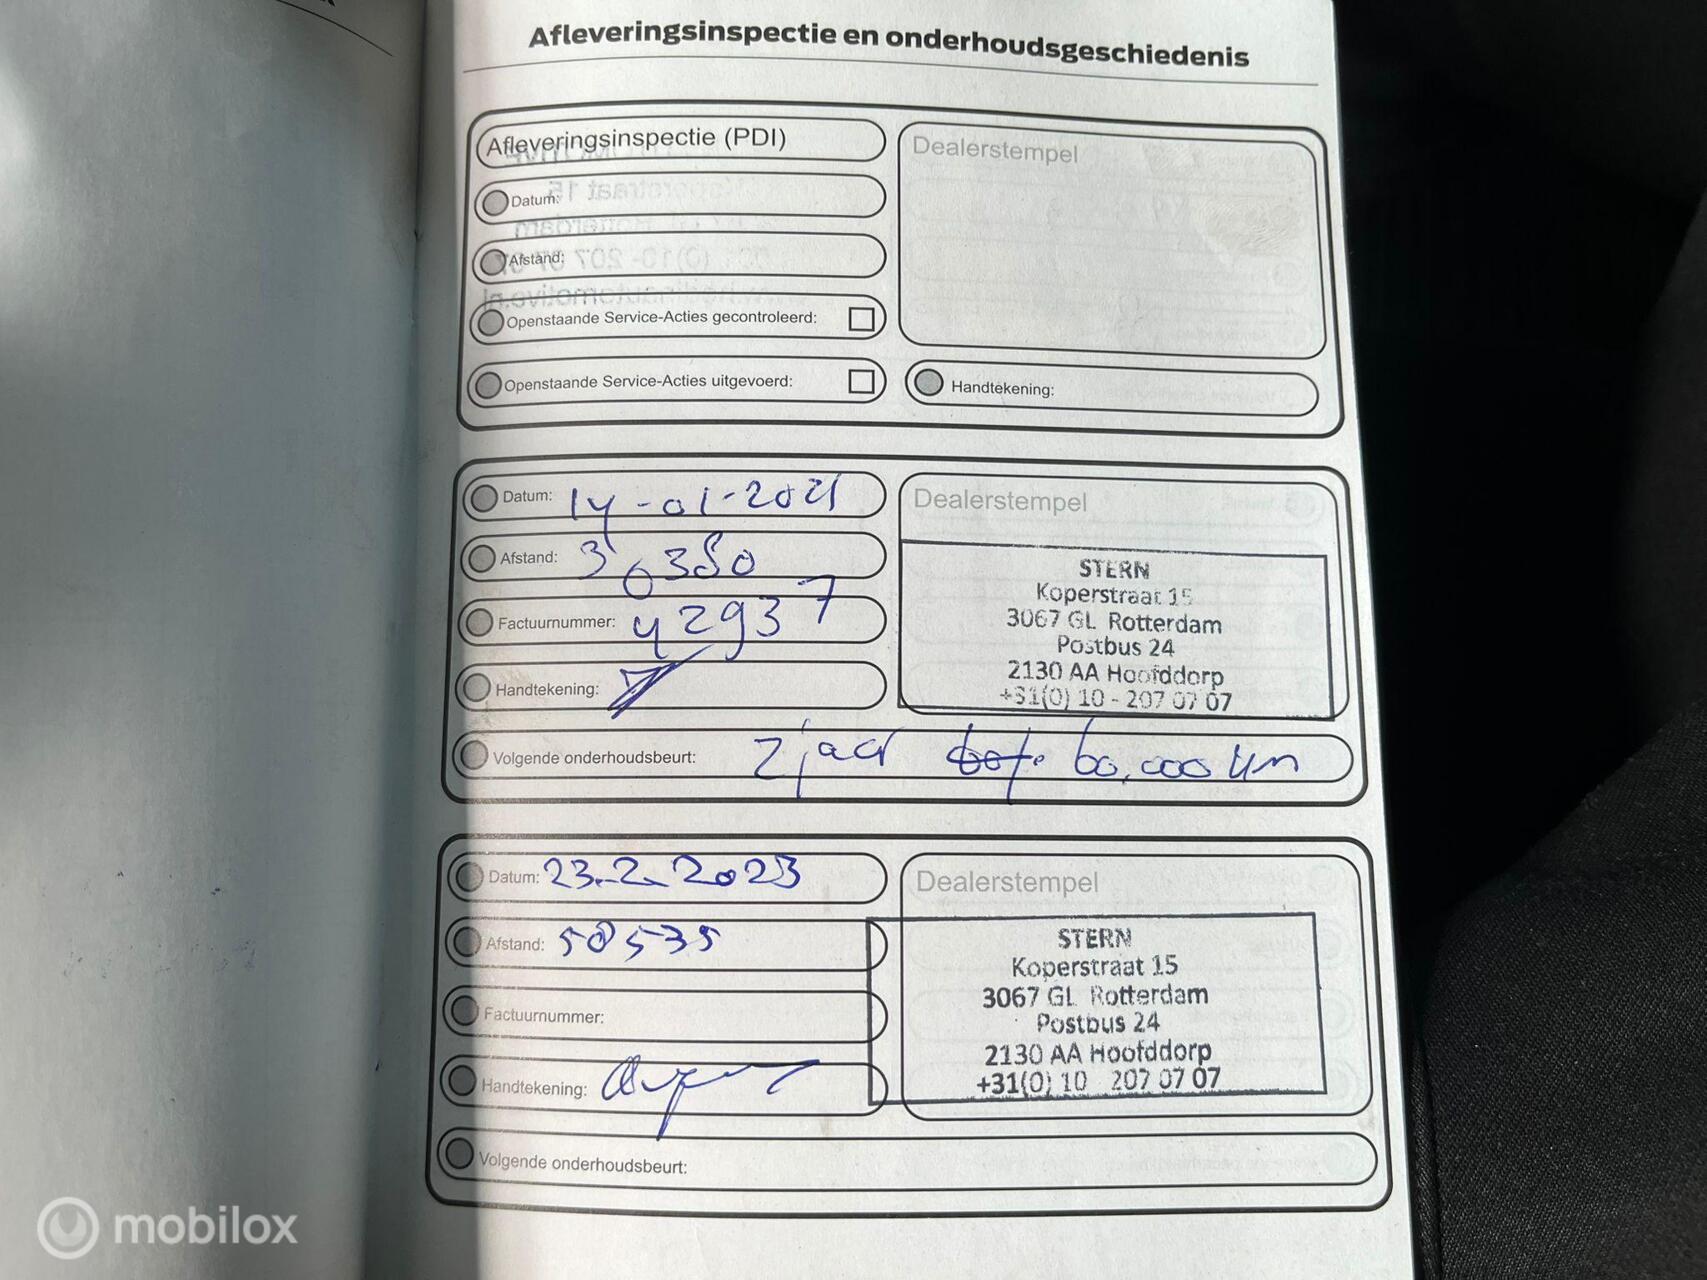 Afleveringsinspectie en onderhoudsgeschiedenis
Afleveringsinspectie (PDI)
Dealerstempel
Datum:
Afstand:
Openstaande Service-Acties gecontroleerd:
Openstaande Service-Acties uitgevoerd:
Handtekening:
Datum: 14-01-2021
Afstand: 30380
Factuurnummer: 42937
Handtekening:
Dealerstempel
STERN
Koperstraat 15
3067 GL Rotterdam
Postbus 24
2130 AA Hoofddorp
+31(0) 10 - 207 07 07
Volgende onderhoudsbeurt: 2 jaar 60.000 km
Datum: 23-2-2023
Afstand: 58535
Factuurnummer:
Handtekening:
Dealerstempel
STERN
Koperstraat 15
3067 GL Rotterdam
Postbus 24
2130 AA Hoofddorp
+31(0) 10 207 07 07
Volgende onderhoudsbeurt:
mobilox